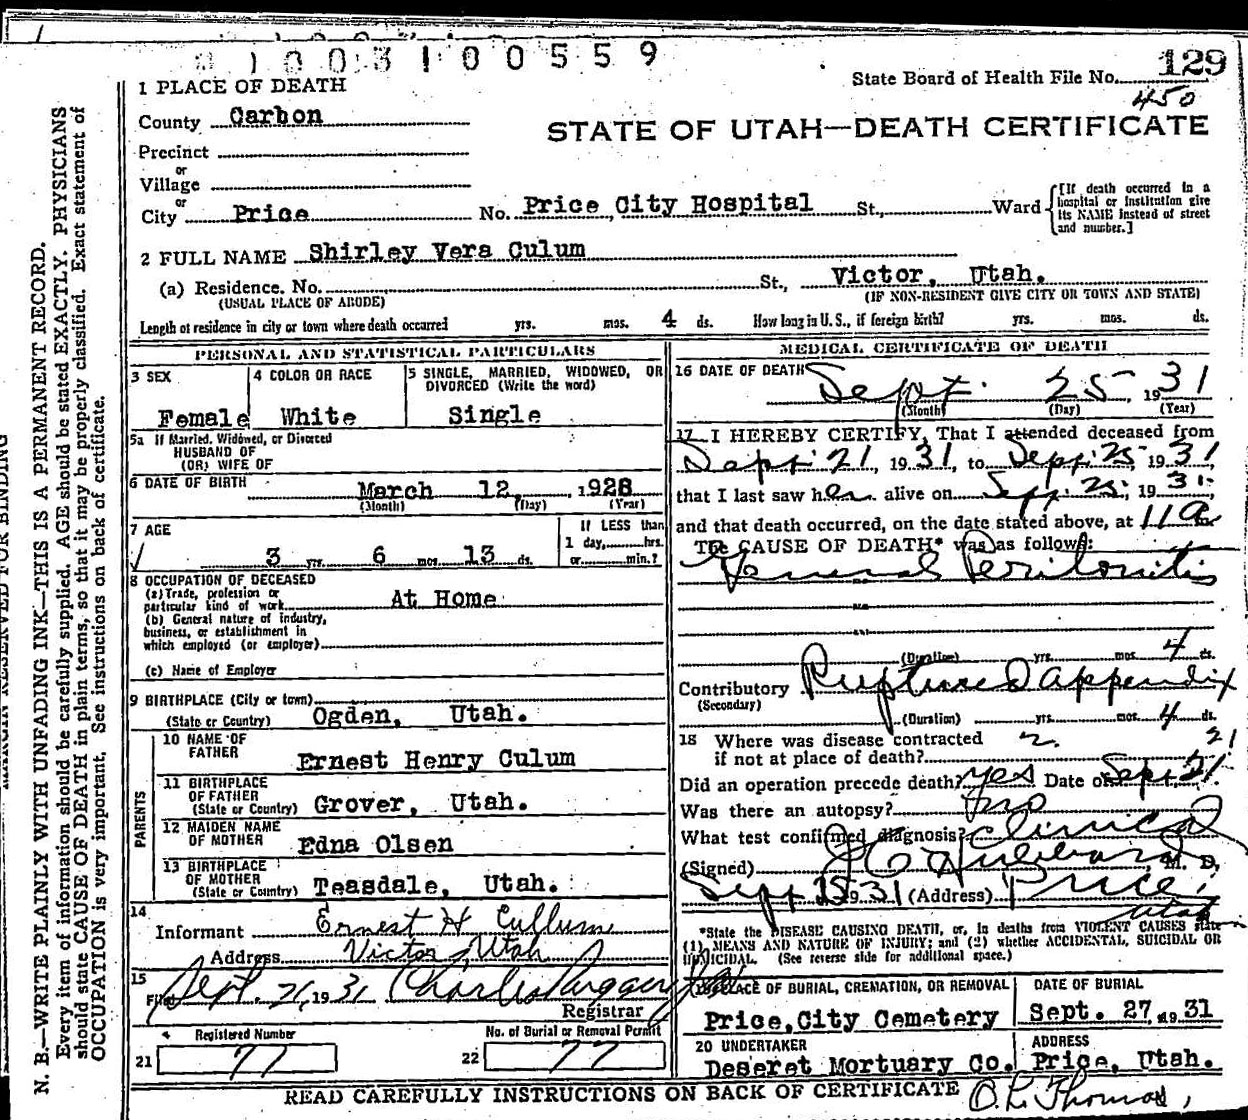 0 1 0 0 3 1 0 0 5 5 9
State Board of Health File No. 129
450
STATE OF UTAH—DEATH CERTIFICATE
1 PLACE OF DEATH
County Carbon
Precinct
or
Village
or
City Price No. Price City Hospital St., Ward
[If death occurred in a hospital or institution give its NAME instead of street and number.]
2 FULL NAME Shirley Vera Culum
(a) Residence. No. St., Victor, Utah.
(USUAL PLACE OF ABODE) (IF NON-RESIDENT GIVE CITY OR TOWN AND STATE)
Length of residence in city or town where death occurred yrs. mos. 4 ds. How long in U. S., if foreign birth? yrs. mos. ds.
PERSONAL AND STATISTICAL PARTICULARS
3 SEX
Female
4 COLOR OR RACE
White
5 SINGLE, MARRIED, WIDOWED, OR DIVORCED (Write the word)
Single
5a If Married, Widowed, or Divorced
HUSBAND OF
(OR) WIFE OF
6 DATE OF BIRTH March 12, 1928
(Month) (Day) (Year)
7 AGE
3 yrs. 6 mos. 13 ds.
If LESS than
1 day, hrs.
or min.?
8 OCCUPATION OF DECEASED
(a) Trade, profession or
particular kind of work At Home
(b) General nature of industry,
business, or establishment in
which employed (or employer)
(c) Name of Employer
9 BIRTHPLACE (City or town)
(State or Country) Ogden, Utah.
PARENTS
10 NAME OF
FATHER Ernest Henry Culum
11 BIRTHPLACE
OF FATHER
(State or Country) Grover, Utah.
12 MAIDEN NAME
OF MOTHER Edna Olsen
13 BIRTHPLACE
OF MOTHER
(State or Country) Teasdale, Utah.
14
Informant Ernest H Cullum
Address Victor, Utah
15
Filed Sept. 26, 1931 Charles
Registrar
Registered Number
21 77
No. of Burial or Removal Permit
22 77
MEDICAL CERTIFICATE OF DEATH
16 DATE OF DEATH
Sept. 25 1931
(Month) (Day) (Year)
17 I HEREBY CERTIFY, That I attended deceased from
Sept. 21, 1931, to Sept. 25 1931,
that I last saw her alive on Sept. 25, 1931,
and that death occurred, on the date stated above, at 11 a
The CAUSE OF DEATH* was as follows:
General Peritonitis
(Duration) yrs. mos. 4 ds.
Contributory Ruptured appendix
(Secondary)
(Duration) yrs. mos. 4 ds.
18 Where was disease contracted
if not at place of death?
Did an operation precede death? yes Date of Sept 21
Was there an autopsy? no
What test confirmed diagnosis? Clinical
(Signed) Hubbard, M. D.
Sept 25 1931 (Address) Price,
Utah
*State the DISEASE CAUSING DEATH, or, in deaths from VIOLENT CAUSES state
(1) MEANS AND NATURE OF INJURY; and (2) whether ACCIDENTAL, SUICIDAL OR
HOMICIDAL. (See reverse side for additional space.)
PLACE OF BURIAL, CREMATION, OR REMOVAL
Price, City Cemetery
DATE OF BURIAL
Sept. 27, 19 31
20 UNDERTAKER
Deseret Mortuary Co.
ADDRESS
Price, Utah.
READ CAREFULLY INSTRUCTIONS ON BACK OF CERTIFICATE O. L. Thomas,
MARGIN RESERVED FOR BINDING
N. B.—WRITE PLAINLY WITH UNFADING INK—THIS IS A PERMANENT RECORD.
Every item of information should be carefully supplied. AGE should be stated EXACTLY. PHYSICIANS
should state CAUSE OF DEATH in plain terms, so that it may be properly classified. Exact statement of
OCCUPATION is very important. See instructions on back of certificate.